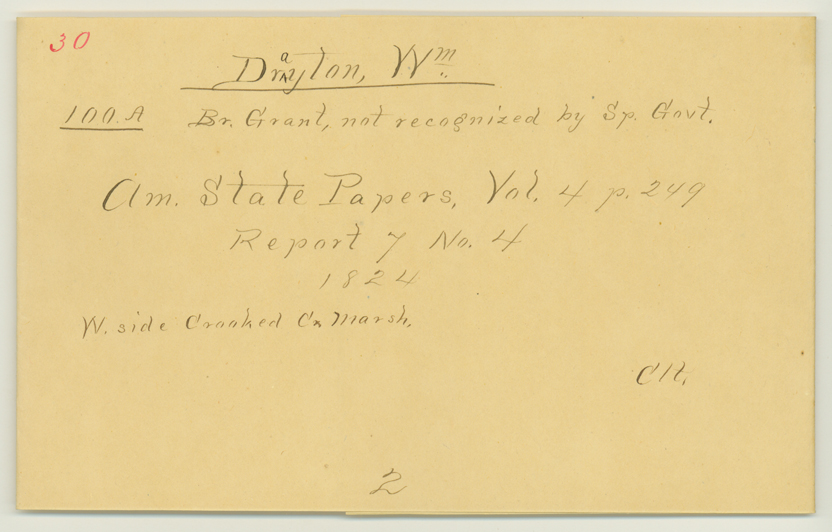 30
Drayton, Wm
100 A Br. Grant, not recognized by Sp. Govt.
Am. State Papers, Vol. 4 p. 249
Report 7 No. 4
1824
W. side Crooked Ck Marsh.
Clt.
2